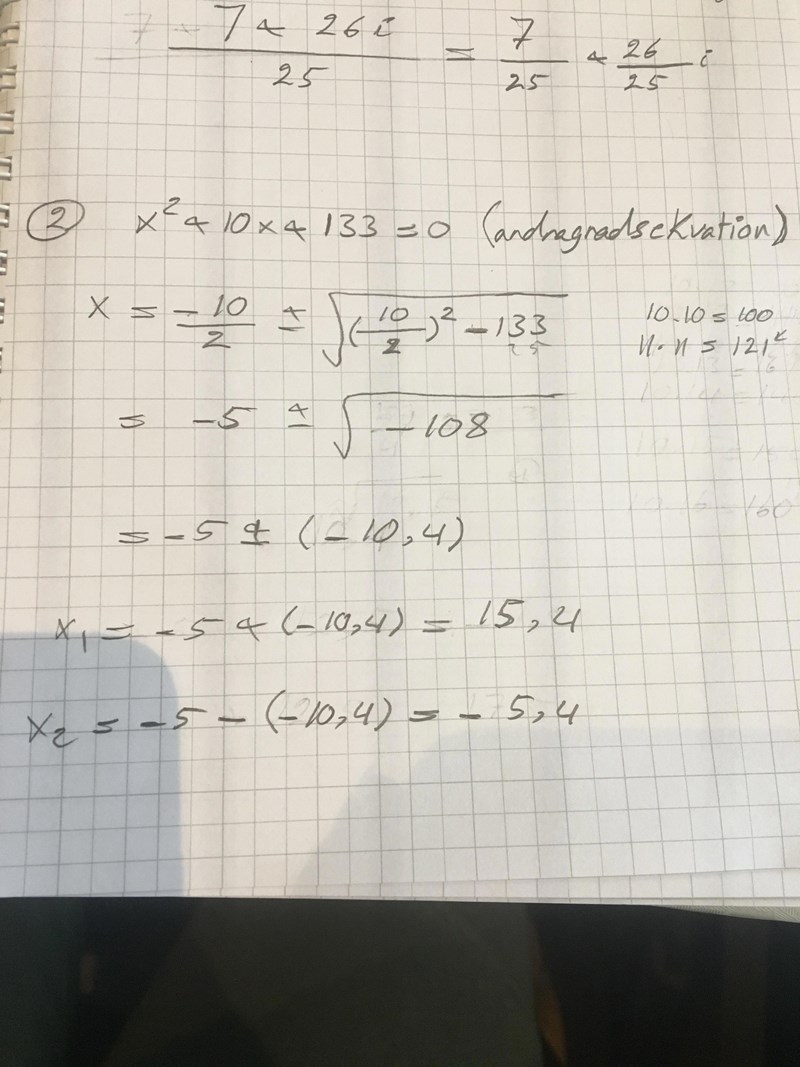 7 + 26i / 25 = 7/25 + 26/25 i
② x² + 10x + 133 = 0 (andragradsekvation)
x = -10/2 ± √((10/2)² - 133)
25
10·10 = 100
11·11 = 121
= -5 ± √-108
= -5 ± (-10,4)
x₁ = -5 + (-10,4) = 15,4
x₂ = -5 - (-10,4) = - 5,4